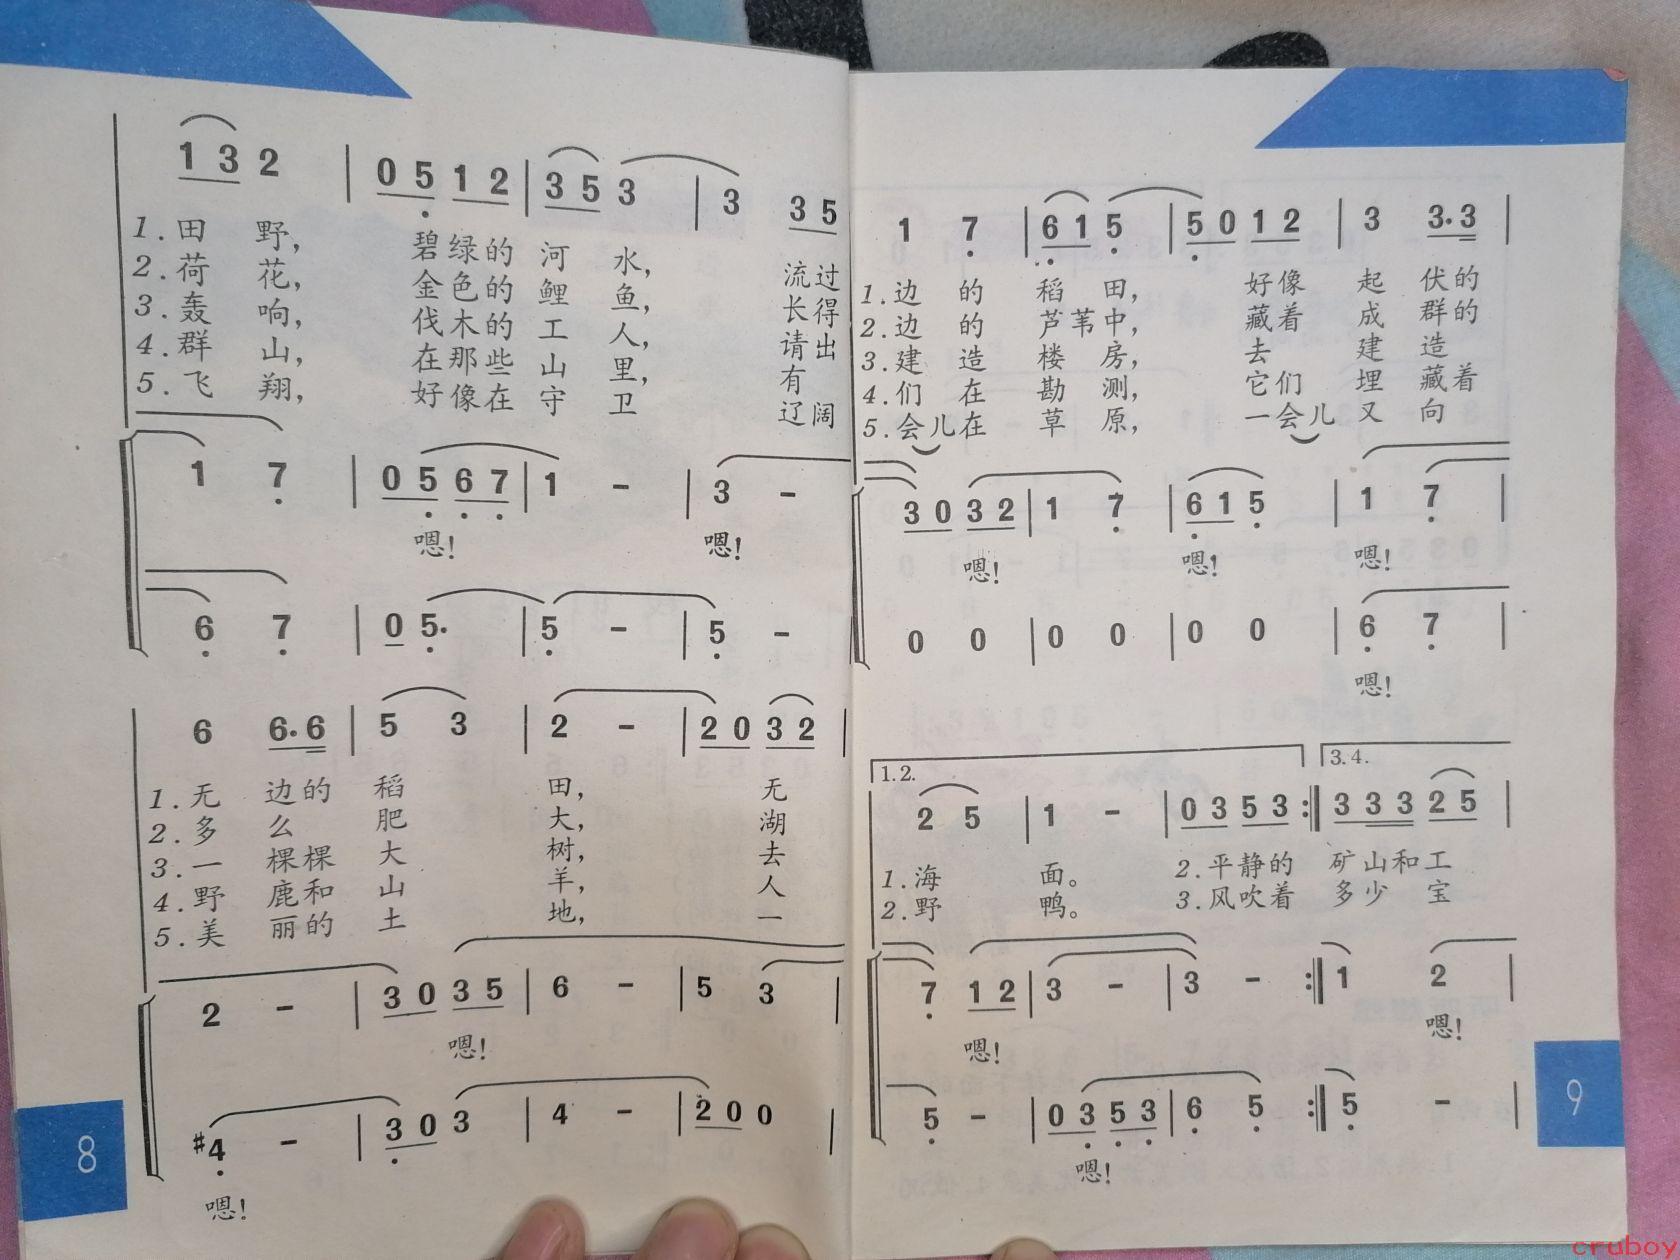 1 3 2 | 0 5 1 2 | 3 5 3 | 3 3 5
1.田 野, 碧绿的 河 水, 流过
2.荷 花, 金色的 鲤 鱼, 长得
3.轰 响, 伐木的 工 人, 请出
4.群 山, 在那些 山 里, 有
5.飞 翔, 好像在 守 卫 辽阔
1 7 | 0 5 6 7 | 1 - | 3 -
嗯! 嗯!
6 7 | 0 5. | 5 - | 5 -
6 6.6 | 5 3 | 2 - | 2 0 3 2 |
1.无 边的 稻 田, 无
2.多 么 肥 大, 湖
3.一 棵棵 大 树, 去
4.野 鹿和 山 羊, 人
5.美 丽的 土 地, 一
2 - | 3 0 3 5 | 6 - | 5 3 |
嗯!
#4 - | 3 0 3 | 4 - | 2 0 0 |
嗯!
8
1 7 | 6 1 5 | 5 0 1 2 | 3 3.3 |
1.边 的 稻 田, 好像 起 伏的
2.边 的 芦苇中, 藏着 成 群的
3.建 造 楼 房, 去 建 造
4.们 在 勘 测, 它们 埋 藏着
5.会儿在 草 原, 一会儿 又 向
3 0 3 2 | 1 7 | 6 1 5 | 1 7 |
嗯! 嗯! 嗯!
0 0 | 0 0 | 0 0 | 6 7 |
嗯!
1.2. 3.4.
2 5 | 1 - | 0 3 5 3 :‖ 3 3 3 2 5 |
1.海 面。 2.平静的 矿山和工
2.野 鸭。 3.风吹着 多少 宝
7 1 2 | 3 - | 3 - :‖ 1 2 |
嗯! 嗯!
5 - | 0 3 5 3 | 6 5 :‖ 5 - |
嗯!
9
cruboy